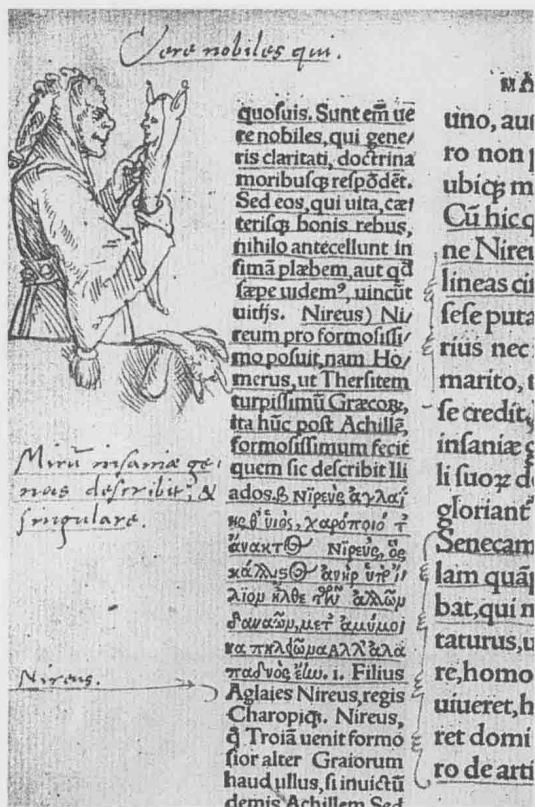 Vere nobiles qui.
quosuis. Sunt em̄ ue
re nobiles, qui gene/
ris claritati, doctrina
moribusqȝ respōdēt.
Sed eos, qui uita, cæ/
terisqȝ bonis rebus,
nihilo antecellunt in
fimā plæbem, aut qd
sæpe uidemꝰ, uincūt
uitijs. Nireus) Ni/
reum pro formosissi/
mo posuit, nam Ho/
merus, ut Thersitem
turpissimū Græcoꝝ,
ita hūc post Achillē,
formosissimum fecit
quem sic describit Ili
ados.β Νῖρεὺς ἀγλαΐ
ης θ' ὑιὸς, χαρόποιό τ'
ἄνακτος Νῖρεὺς, ὃς
κάλλιστος ἀνὴρ ὑπὸ ἴ/
λιον ἦλθε τῶν ἄλλων
δαναῶν, μετ' ἀμύμοι
να πηλείωνα Ἀλλ' ἀλα
παδνὸς ἔην. i. Filius
Aglaies Nireus, regis
Charopiqȝ. Nireus,
q̄ Troiā uenit formo
sior alter Graiorum
haud ullus, si inuictū
demis Achillem Sed
Mirū insaniæ ge-
nus describit, &
singulare.
Nireus.
MA
uno, aut
ro non p
ubiqȝ m
Cū hic q
ne Nireu
lineas cir
sese puta
rius nec
marito, t
se credit,
insaniæ g
li suoꝝ do
gloriant
Senecam
lam quāp
bat, qui n
taturus, u
re, homo
uiueret, h
ret domi
ro de arti